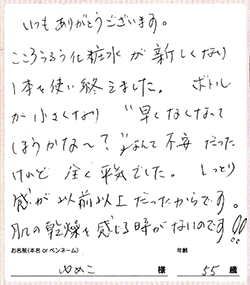 いつもありがとうございます。
こころうるう化粧水が新しくなり
1本を使い終えました。 ボトル
が小さくなり “早くなくなって
しまうかな〜?”なんて不安だった
けれど全く平気でした。 しっとり
感が以前以上だったからです。
肌の乾燥を感じる時がないのです!!
お名前(本名 or ペンネーム) 年齢
ゆめこ 様 55 歳